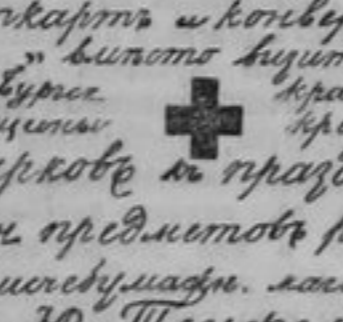 нкартъ и конвер
„ вмѣсто визит
бургск кра
цѣны кр
арковъ къ празд
и предметовъ р
писчебумажн. маг